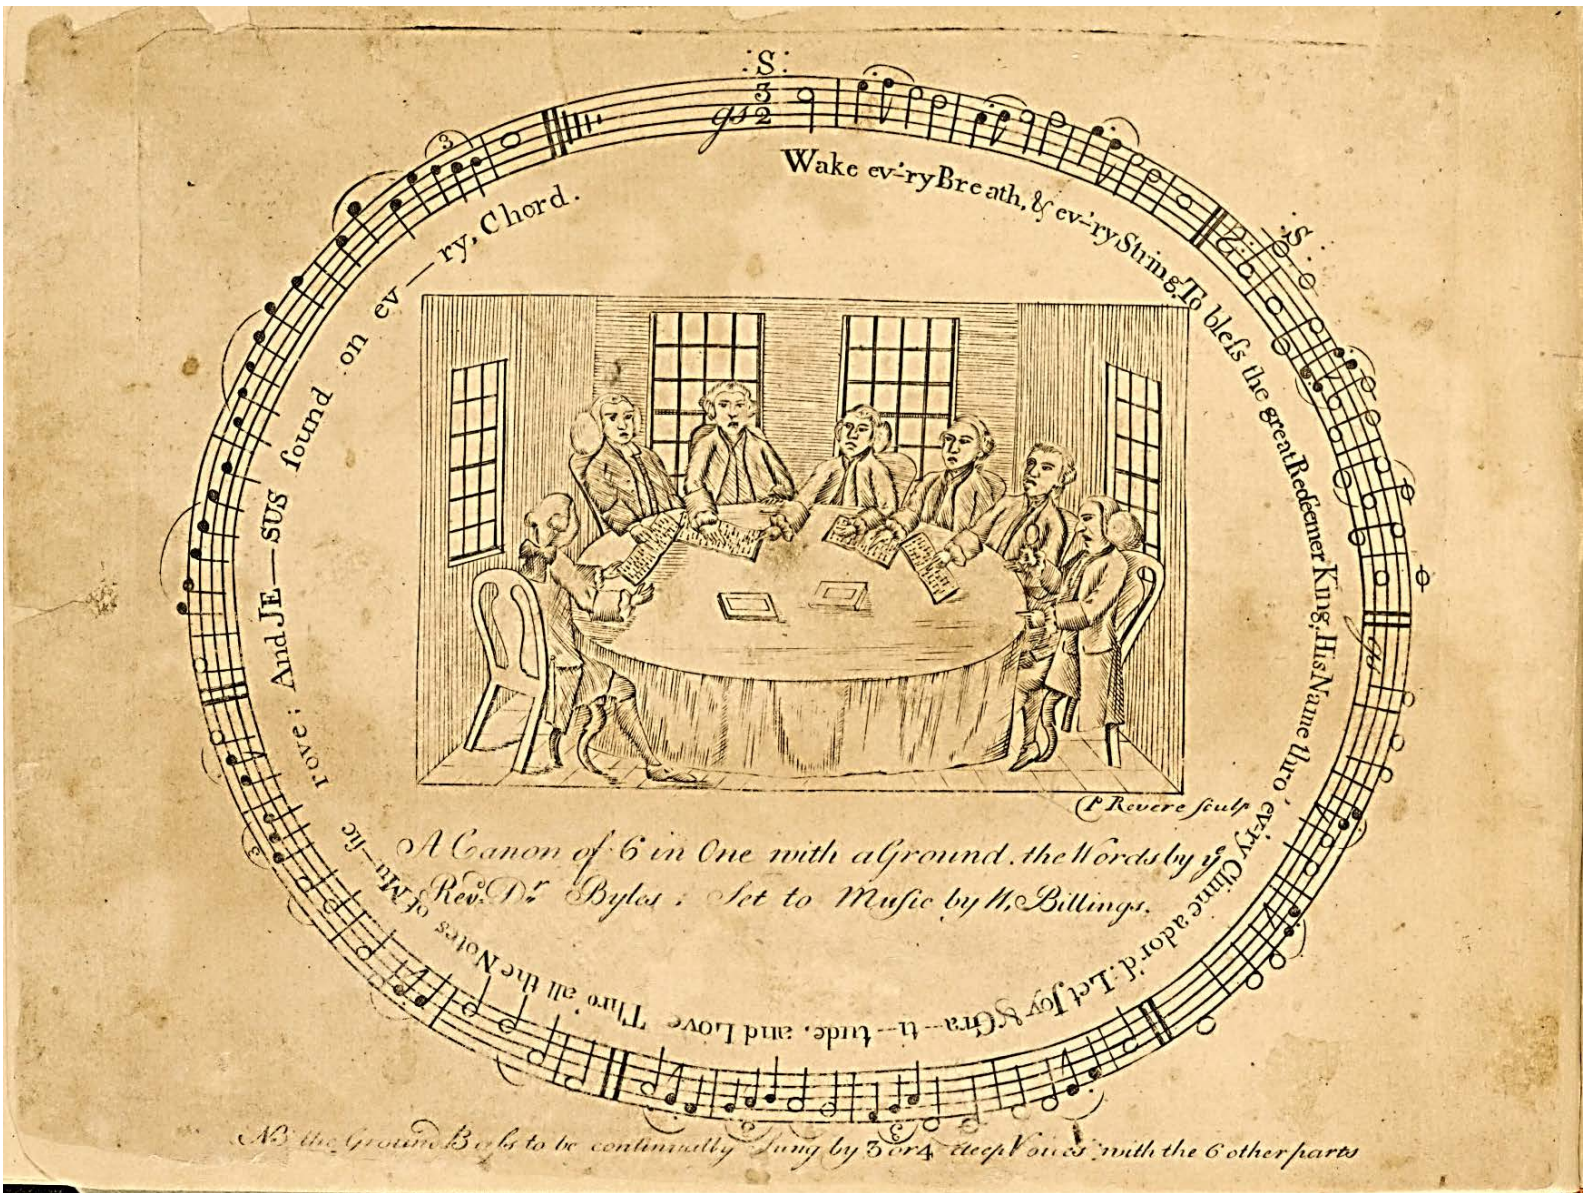 :S:
3
2
gs
Wake ev'-ry Breath, & ev'-ry String, To bleſs the great Redeemer King, His Name thro' ev'-ry Clime ador'd: Let Joy & Gra--ti--tude, and Love Thro' all the Notes of Mu--ſic rove; And JE--SUS ſound on ev--ry, Chord.
:S:
gs
3
3
3
3
P Revere ſculp
A Canon of 6 in One with a Ground. the Words by yᵉ
Revᵈ. Dʳ. Byles; Set to Muſic by W, Billings.
NB the Ground Baſs to be continually Sung by 3 or 4 deep Voices with the 6 other parts